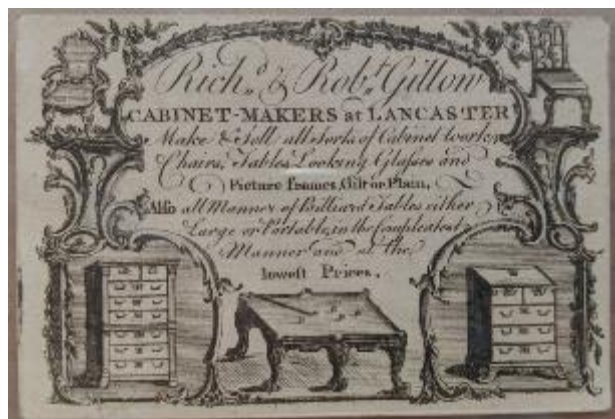 Rich.d & Rob.t Gillow
CABINET-MAKERS at LANCASTER
Make & Sell all Sorts of Cabinet work,
Chairs, Tables Looking Glaſses and
Picture frames, Gilt or Plain,
Alſo all Manner of Billiard Tables either
Large or Portable, in the Compleatest
Manner and at the
lowest Prices.